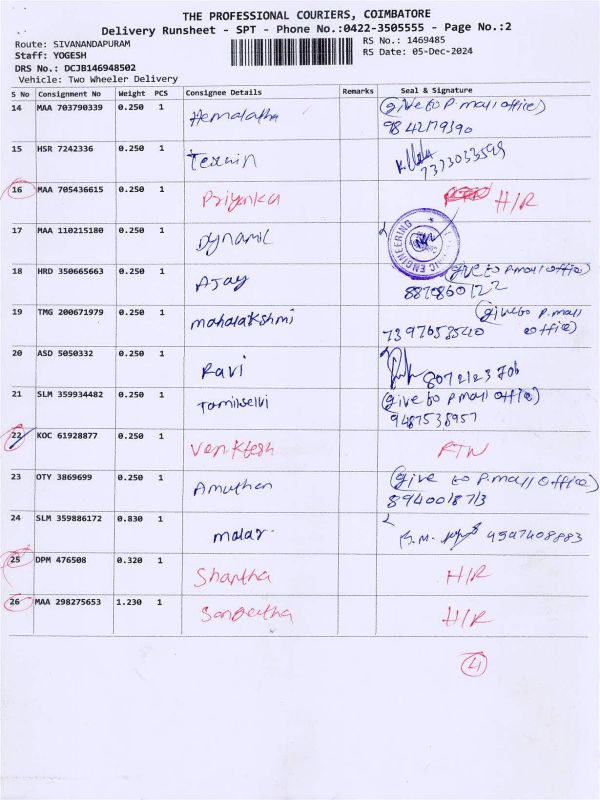 THE PROFESSIONAL COURIERS, COIMBATORE
Delivery Runsheet - SPT - Phone No.:0422-3505555 - Page No.:2
Route: SIVANANDAPURAM
RS No.: 1469485
Staff: YOGESH
RS Date: 05-Dec-2024
DRS No.: DCJB146948502
Vehicle: Two Wheeler Delivery
S No Consignment No Weight PCS Consignee Details Remarks Seal & Signature
14 MAA 703790339 0.250 1 Hemalatha (give to P.mall office)
9842179390
15 HSR 7242336 0.250 1 7373033599
16 MAA 705436615 0.250 1 Priyanka H/R
17 MAA 110215180 0.250 1 Dynamic
ENGINEERING
18 HRD 350665663 0.250 1 Ajay (give to P.mall office)
8870860122
19 TMG 200671979 0.250 1 mahalakshmi (give to P.mall
office)
7397658540
20 ASD 5050332 0.250 1 Ravi
21 SLM 359934482 0.250 1 Tamilselvi (give to P mall office)
9487538957
22 KOC 61928877 0.250 1 Venktesh RTN
23 OTY 3869699 0.250 1 Amuthan (give to P.mall office)
8940018713
24 SLM 359886172 0.830 1 malar
25 DPM 476508 0.320 1 Shantha H/R
26 MAA 298275653 1.230 1 Sangeetha H/R
4